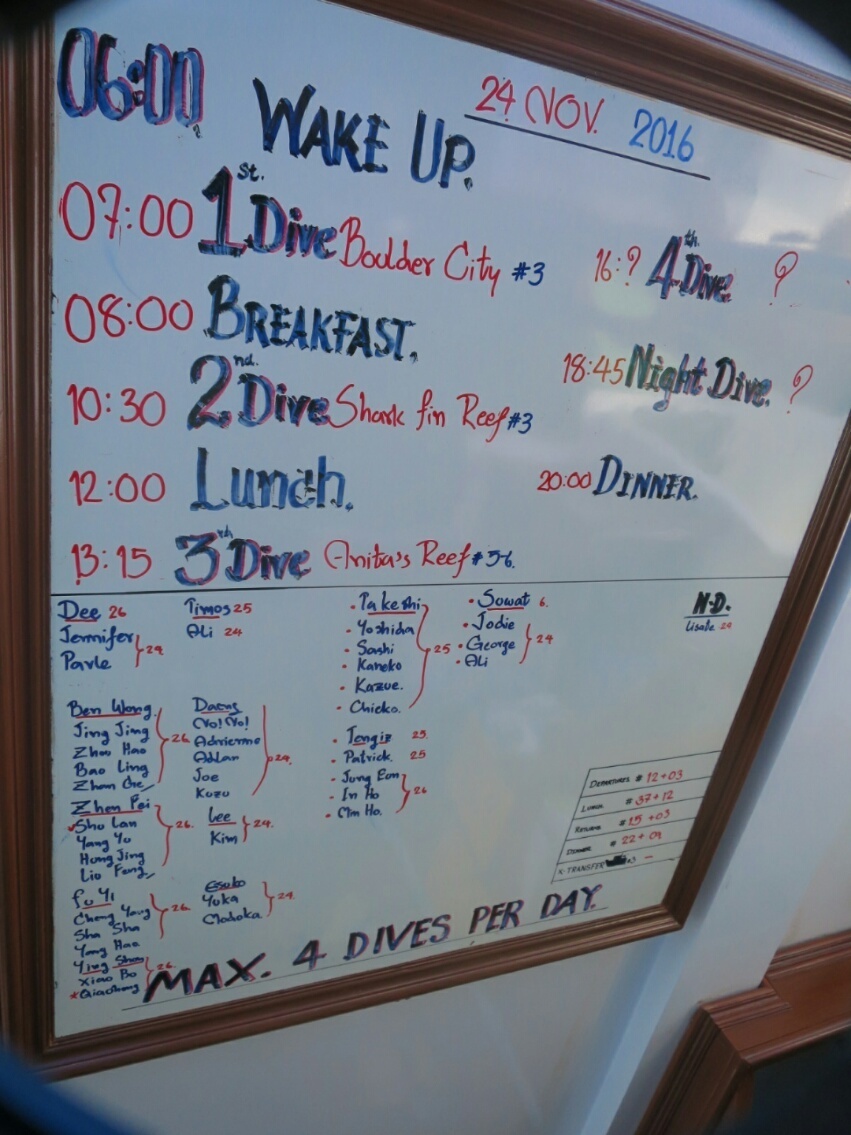 06:00 WAKE UP.
24 NOV. 2016
07:00 1st. Dive Boulder City #3
08:00 BREAKFAST.
10:30 2nd. Dive Shark fin Reef #3
12:00 Lunch.
13:15 3th Dive Anita's Reef #5-6.
16:? 4th. Dive. ?
18:45 Night Dive. ?
20:00 DINNER.
Dee 26
Jennifer
Parle
} 24
Timos 25
Ali 24
• Takeshi
• Yoshida
• Sashi
• Kaneko
• Kazue.
• Chieko.
} 25
• Sowat 6.
• Jodie
• George
• Ali
} 24
N.D.
Lisalle 24
Ben Wong
Jing Jing
Zhou Hao
Bao Ling
} 26
Yo! Yo!
Adrienne
Addan
Joe
Kozo
} 24.
• Tengiz 25.
• Patrick. 25
• Jung Eon
• In Ho
• Om Ho.
} 26
Zhen Pei
Shu Lan
Yang Yu
Hong Jing
Liu Feng
} 26.
Lee
Kim
} 24.
Fu Yi
Cheng Yang
Sha Sha
Yang Hao
} 26
Yuka
Madoka
} 24.
Ying Shan
Xiao Bo
*Qiaohong
} 26
DEPARTURES # 12+03
LUNCH # 37+12
RETURN # 15+03
DINNER # 22+09
X-TRANSFER #3 –
MAX. 4 DIVES PER DAY.